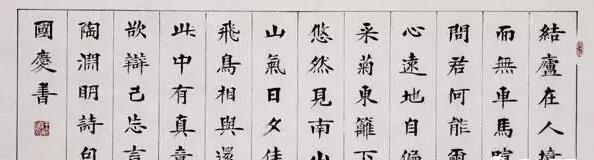 結廬在人境
而無車馬喧
問君何能爾
心遠地自偏
采菊東籬下
悠然見南山
山氣日夕佳
飛鳥相與還
此中有真意
欲辯已忘言
陶淵明詩句
國慶書